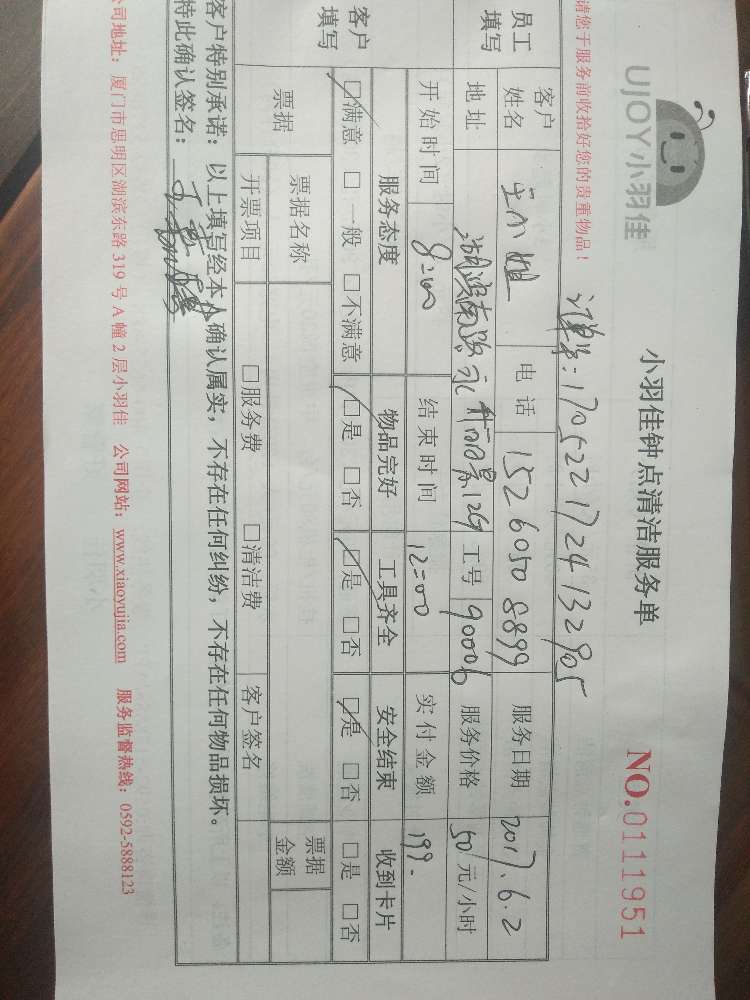 UJOY小羽佳
小羽佳钟点清洁服务单
NO.0111951
请您于服务前收拾好您的贵重物品！
订单号：1705221724132905
员工填写 客户姓名 小姐 电话 15260508899 服务日期 2017.6.2
地址 湖滨南路 12G 工号 90006 服务价格 50元/小时
客户填写 开始时间 8:00 结束时间 12:00 实付金额 199.
服务态度 物品完好 工具齐全 安全结束 收到卡片
□满意 □一般 □不满意 □是 □否 □是 □否 □是 □否 □是 □否
票据 票据名称 票据金额
开票项目 □服务费 □清洁费 客户签名
客户特别承诺：以上填写经本人确认属实，不存在任何纠纷，不存在任何物品损坏。
特此确认签名：
公司地址：厦门市思明区湖滨东路319号A幢2层小羽佳 公司网站：www.xiaoyujia.com 服务监督热线：0592-5888123